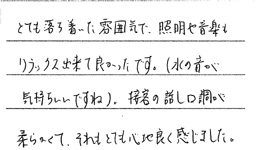 とても落ち着いた雰囲気で、照明や音楽も
リラックス出来て良かったです。(水の音が
気持ちいいですね)。接客の話し口調が
柔らかくて、それもとても心地良く感じました。